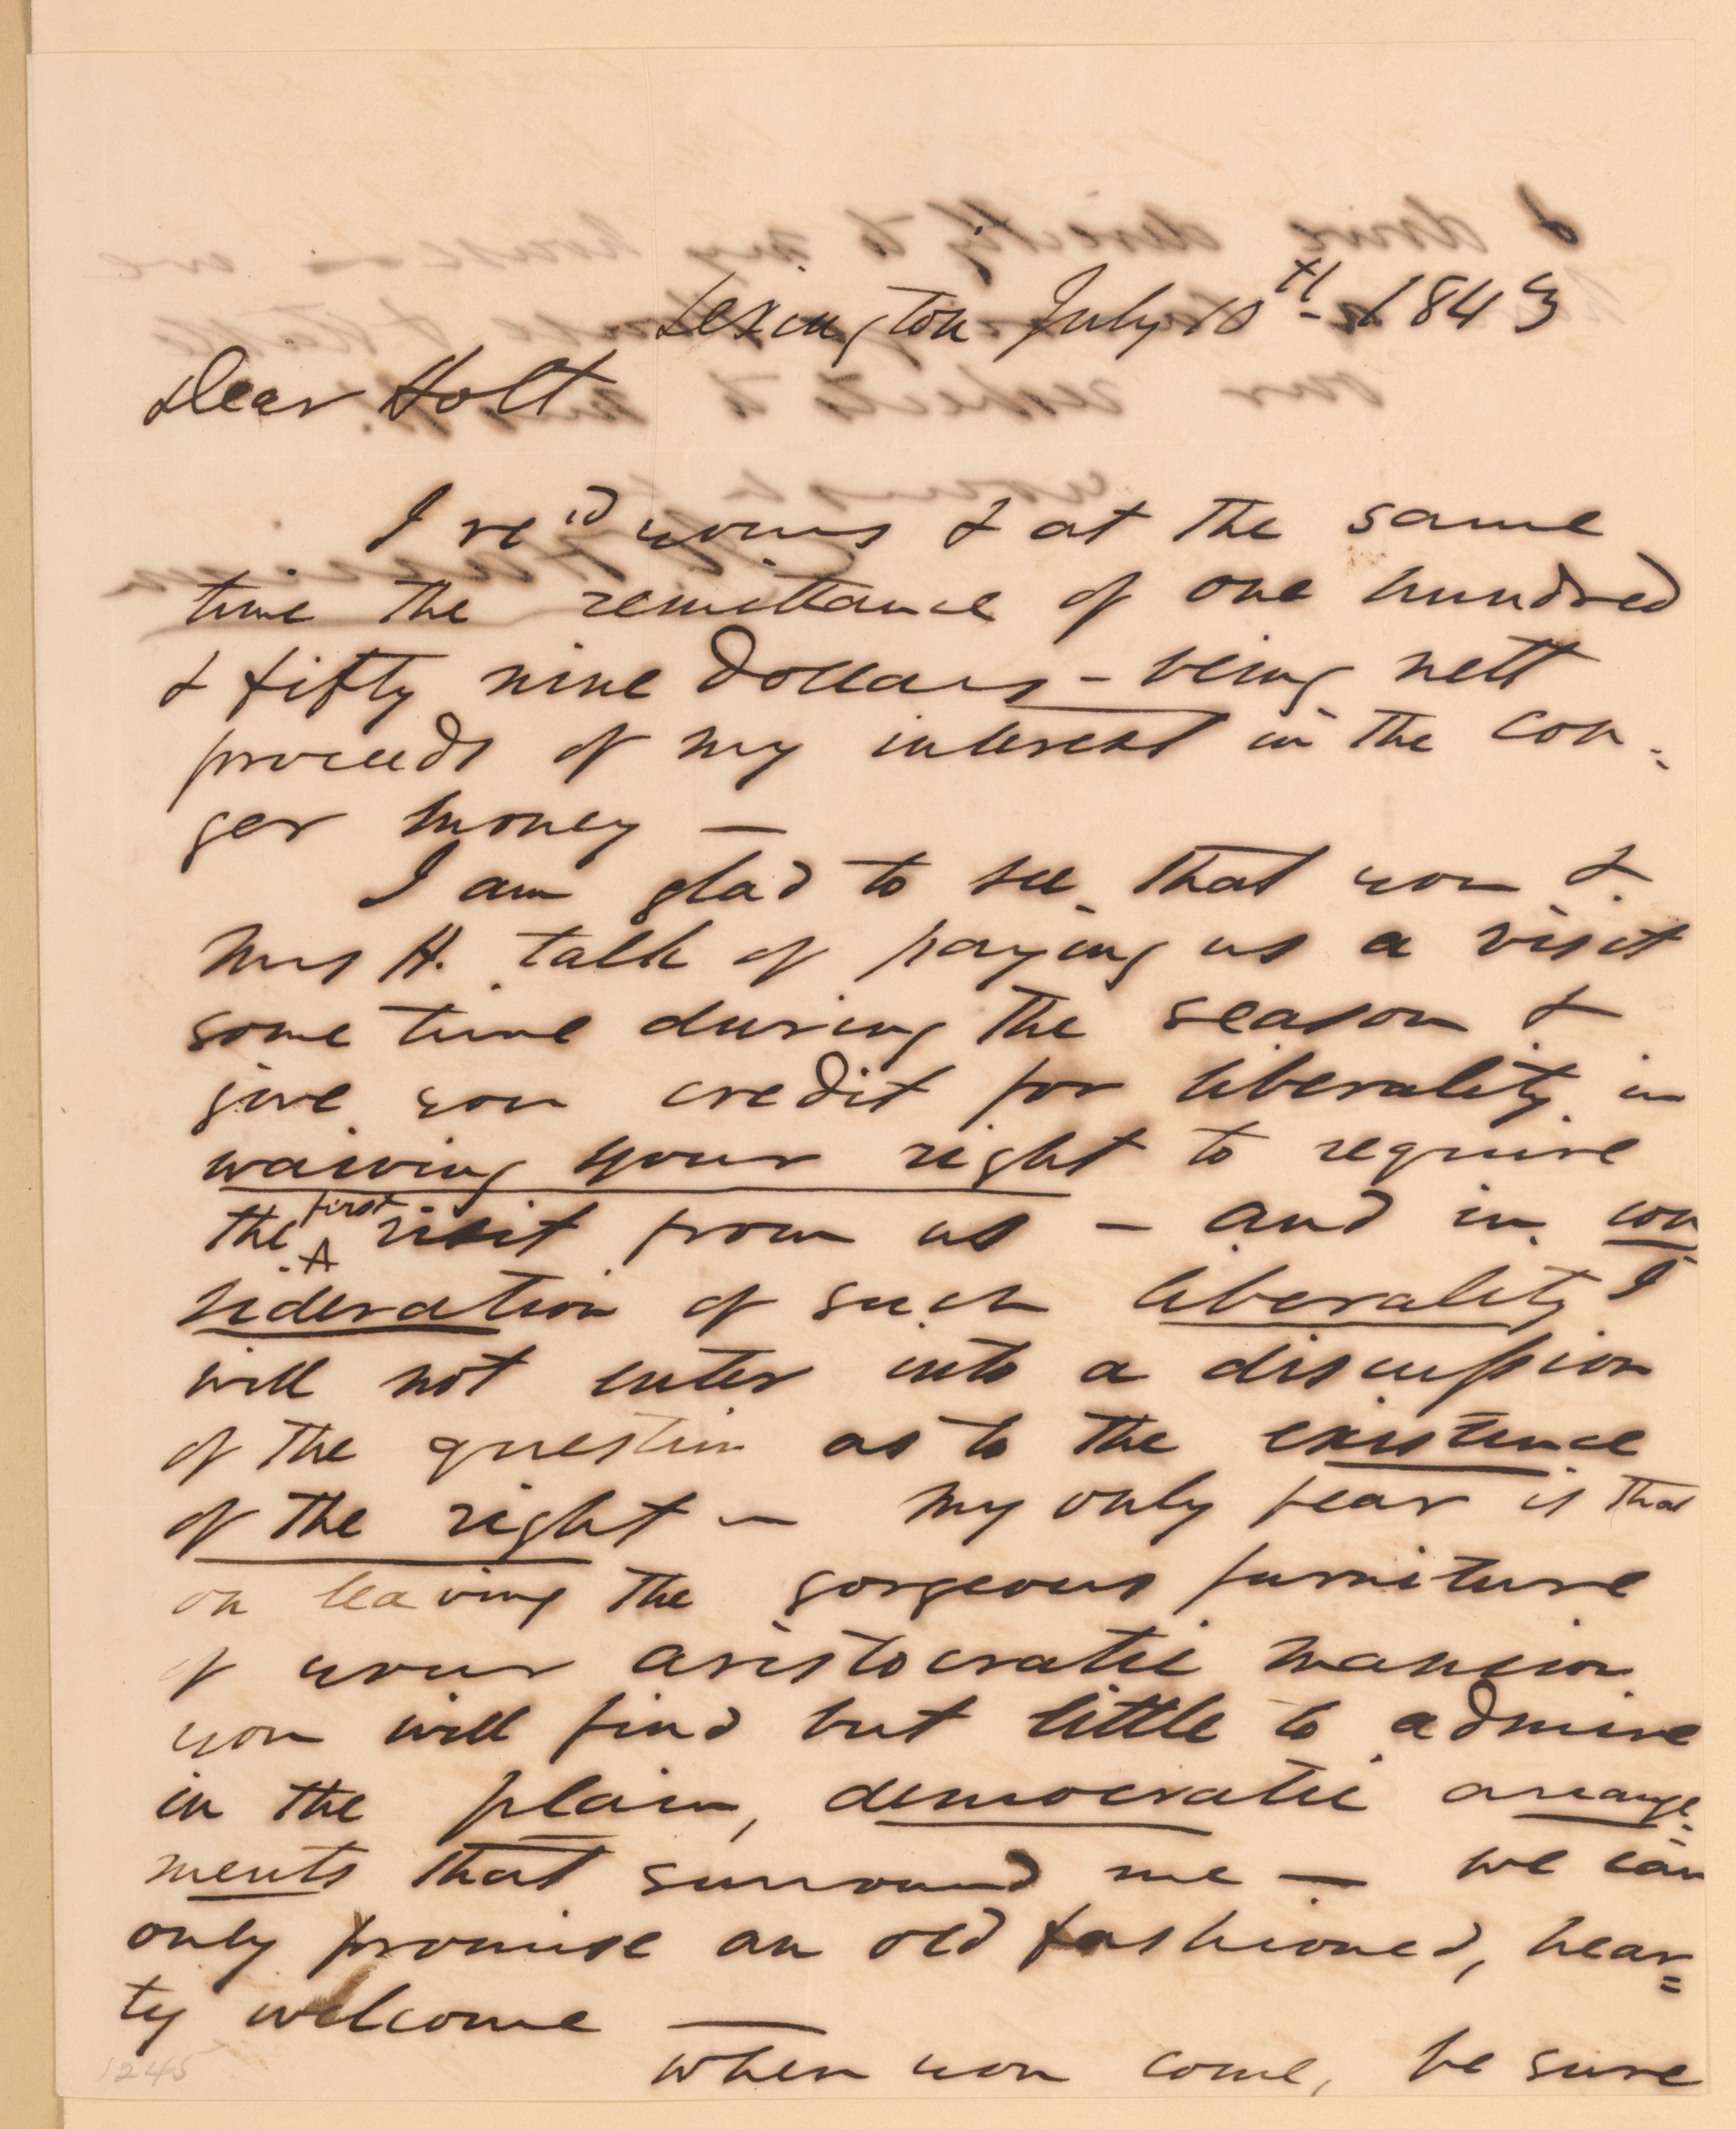 Lexington July 10th - 1843
Dear Holt
I recd yours & at the same
time the remittance of one hundred
& fifty nine dollars - being nett
proceeds of my interest in the Con-
ger money —
I am glad to see that you &
Mrs H. talk of paying us a visit
some time during the season &
give you credit for liberality in
waiving your right to require
the first visit from us — and in con
sideration of such liberality I
will not enter into a discussion
of the question as to the existence
of the right — My only fear is that
on leaving the gorgeous furniture
of your aristocratic mansion
you will find but little to admire
in the plain, democratic arrange=
ments that surround me — We can
only promise an old fashioned, hear=
ty welcome —
When you come, be sure
1245